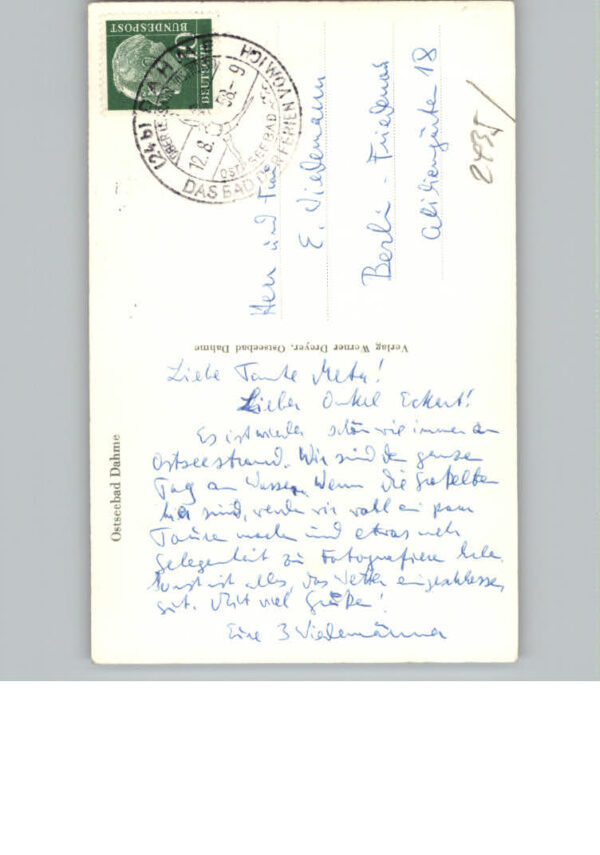 DEUTSCHE
BUNDESPOST
(24b) DAHME
ÜBER LENSAHN
12.8.58-9
OSTSEEBAD
DAS BAD DER FERIEN VOM ICH
2435
Herr und Frau
E. Wiedemann
Berlin - Friedenau
18
Verlag Werner Dreyer, Ostseebad Dahme
Ostseebad Dahme
Liebe Tante Meta!
Lieber Onkel Eckart!
Es ist wieder schön wie immer am
Ostseestrand. Wir sind den ganzen
Tag am Wasser. Wenn die
hier sind, werden wir wohl ein paar
Touren machen und etwas mehr
Gelegenheit zu Fotografieren haben.
Sonst ist alles, das Wetter eingeschlossen,
gut. Mit viel Grüßen!
Eure 3 Wiedemänner